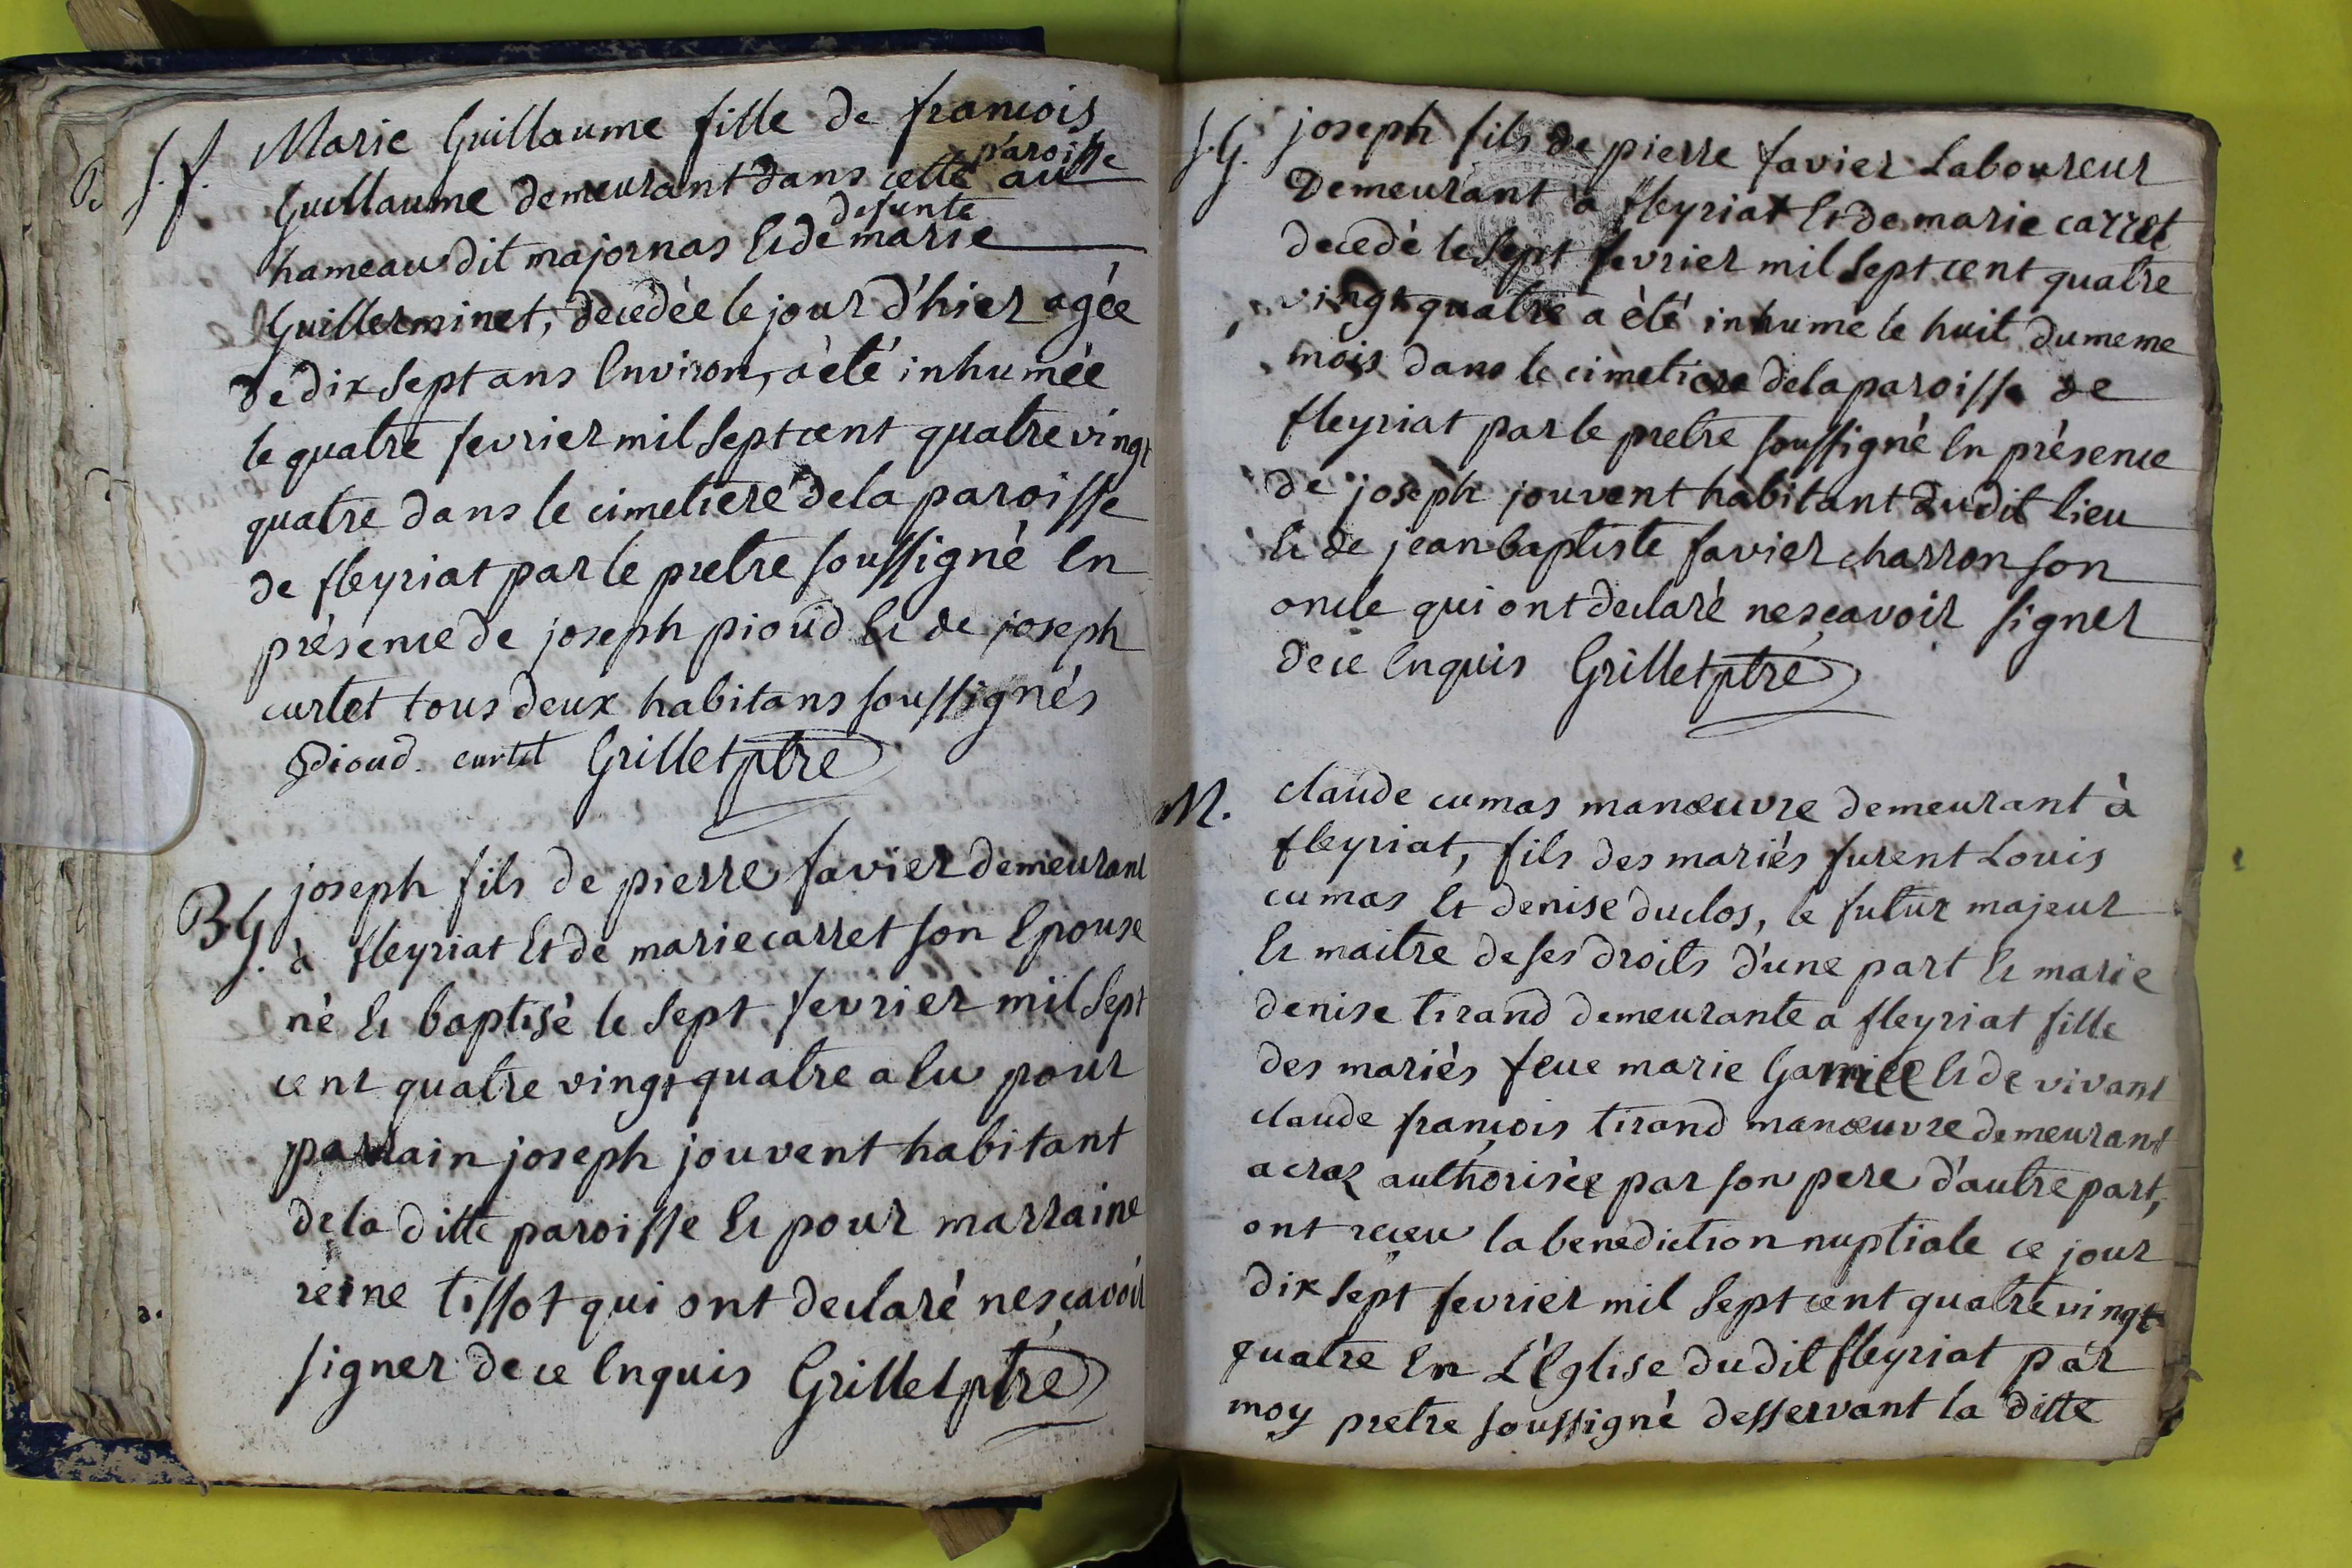 S. f. Marie Guillaume fille de francois
Guillaume demeurant dans cette paroisse au
hameau dit majornas Et de defunte marie
Guillerminet, decédèe le jour d'hier agée
de dix sept ans Environ, à èté inhumée
le quatre fevrier mil sept cent quatre vingt
quatre dans le cimetiere de la paroisse
de fleyriat par le pretre soussigné En
présence de joseph pioud Et de joseph
curtet tous deux habitans soussignés
Pioud. curtet Grillet ptre
BG. joseph fils de pierre favier demeurant
à fleyriat Et de marie carret son Epouse
né Et baptisé le sept fevrier mil sept
cent quatre vingt quatre a Eu pour
parrain joseph jouvent habitant
de la ditte paroisse Et pour marraine
reine tissot qui ont declaré ne sçavoir
signer de ce Enquis Grillet ptre
S.G. joseph fils de pierre favier Laboureur
Demeurant à fleyriat Et de marie carret
decedé le sept fevrier mil sept cent quatre
vingt quatre a èté inhume le huit du meme
mois dans le cimetiere de la paroisse de
fleyriat par le pretre soussigné En prèsence
de joseph jouvent habitant dudit lieu
Et de jean baptiste favier charron son
oncle qui ont declaré ne sçavoir signer
de ce Enquis Grillet ptre
M. claude cumas manœuvre demeurant à
fleyriat, fils des mariés furent Louis
cumas Et denise duclos, le futur majeur
Et maitre de ses droits d'une part Et marie
denise tirand demeurante a fleyriat fille
des mariés feue marie Et de vivant
claude francois tirand manœuvre demeurant
a craz authorisée par son pere d'autre part,
ont receu la benediction nuptiale ce jour
dix sept fevrier mil sept cent quatre vingt
quatre En L'Eglise dudit fleyriat par
moy pretre soussigné desservant la ditte